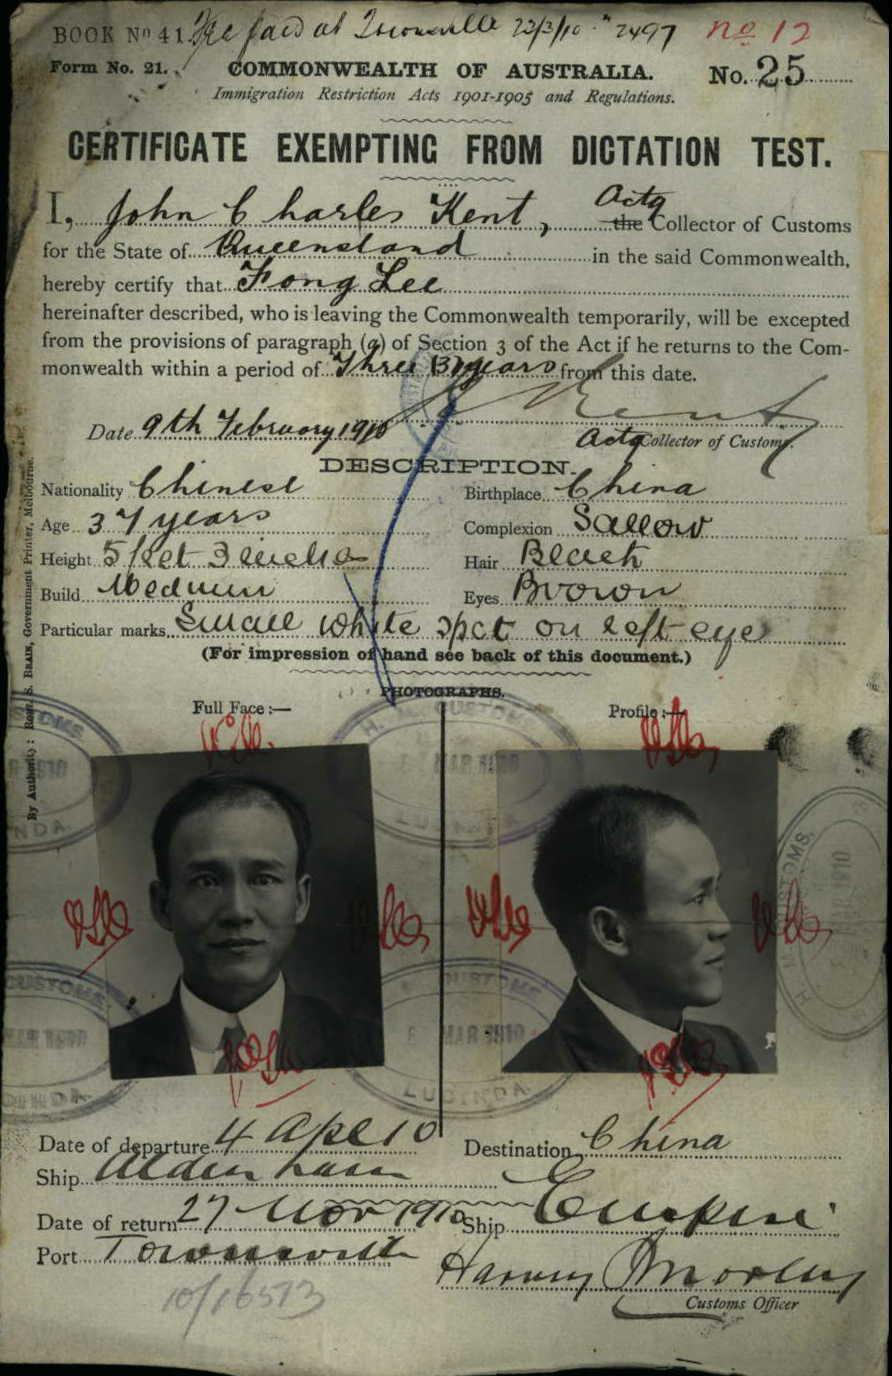 BOOK Nº 41 Fee paid at Townsville 22/3/10 2497 No 12
Form No. 21. COMMONWEALTH OF AUSTRALIA. No. 25
Immigration Restriction Acts 1901-1905 and Regulations.
CERTIFICATE EXEMPTING FROM DICTATION TEST.
I, John Charles Kent, Actg the Collector of Customs
for the State of Queensland in the said Commonwealth,
hereby certify that Fong Lee
hereinafter described, who is leaving the Commonwealth temporarily, will be excepted
from the provisions of paragraph (a) of Section 3 of the Act if he returns to the Com-
monwealth within a period of Three (3) years from this date.
Date 9th February 1910 Kent
Actg Collector of Customs.
DESCRIPTION.
Nationality Chinese Birthplace China
Age 37 years Complexion Sallow
Height 5 feet 3 inches Hair Black
Build Medium Eyes Brown
Particular marks Small white spot on left eye
(For impression of hand see back of this document.)
PHOTOGRAPHS.
Full Face :— Profile :—
By Authority : Robt. S. Brain, Government Printer, Melbourne.
H. M. CUSTOMS
MAR 1910
LUCINDA
Date of departure 4 Apl 10 Destination China
Ship Aldenham
Date of return 27 Nov 1910 Ship Empire
Port Townsville
Harvey Morley
Customs Officer
10/16573